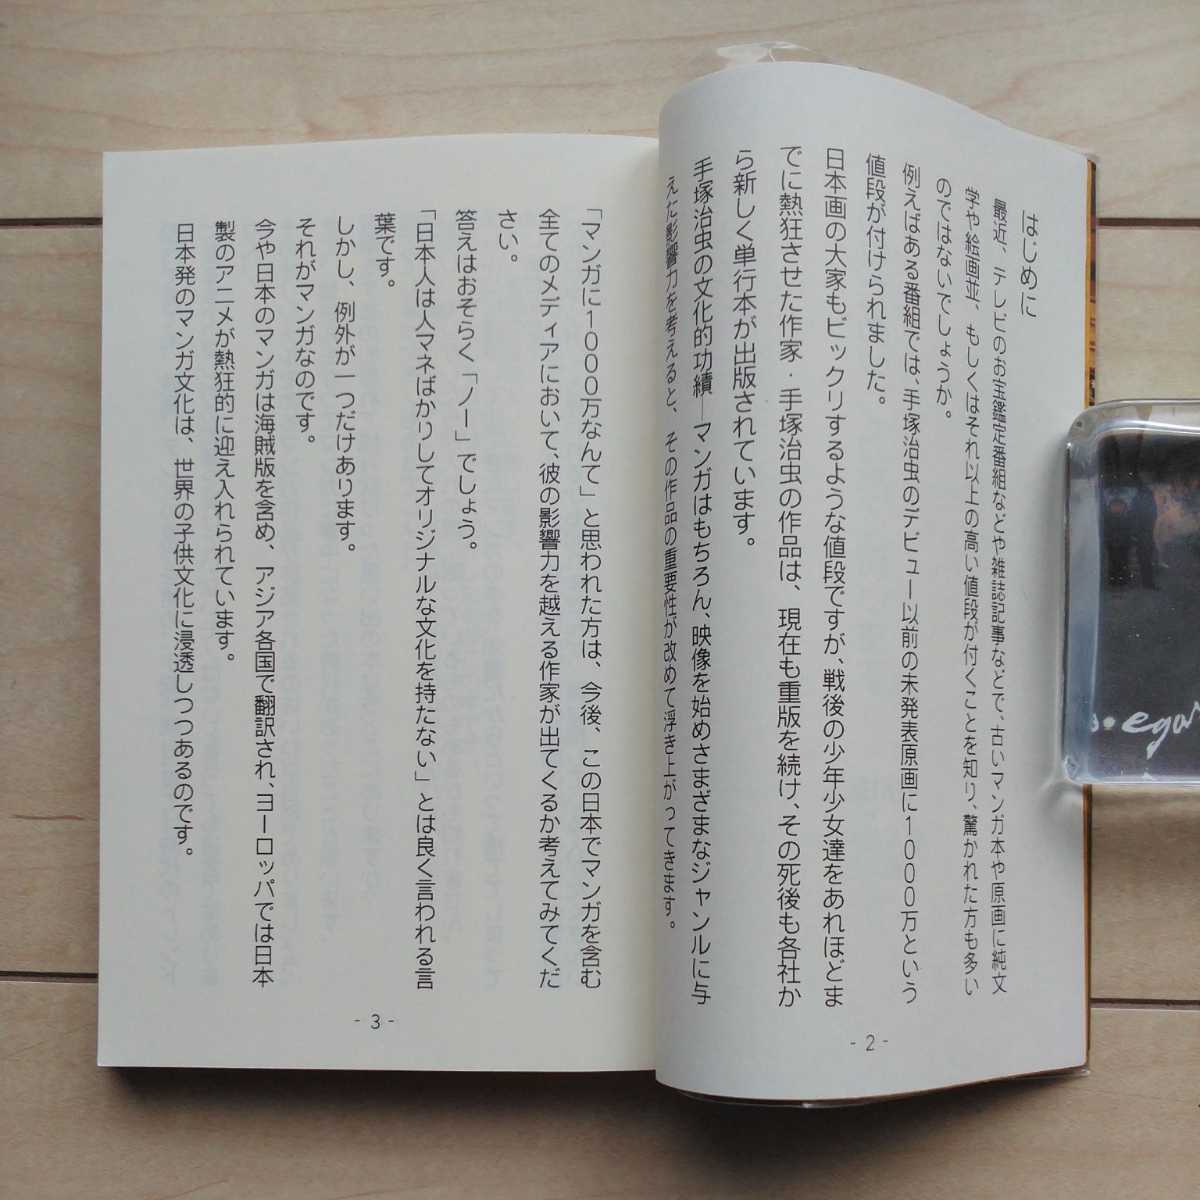 はじめに
最近、テレビのお宝鑑定番組などや雑誌記事などで、古いマンガ本や原画に純文
学や絵画並、もしくはそれ以上の高い値段が付くことを知り、驚かれた方も多い
のではないでしょうか。
例えばある番組では、手塚治虫のデビュー以前の未発表原画に1000万という
値段が付けられました。
日本画の大家もビックリするような値段ですが、戦後の少年少女達をあれほどま
でに熱狂させた作家・手塚治虫の作品は、現在も重版を続け、その死後も各社か
ら新しく単行本が出版されています。
手塚治虫の文化的功績―マンガはもちろん、映像を始めさまざまなジャンルに与
えた影響力を考えると、その作品の重要性が改めて浮き上がってきます。
- 2 -
「マンガに1000万なんて」と思われた方は、今後、この日本でマンガを含む
全てのメディアにおいて、彼の影響力を越える作家が出てくるか考えてみてくだ
さい。
答えはおそらく「ノー」でしょう。
「日本人は人マネばかりしてオリジナルな文化を持たない」とは良く言われる言
葉です。
しかし、例外が一つだけあります。
それがマンガなのです。
今や日本のマンガは海賊版を含め、アジア各国で翻訳され、ヨーロッパでは日本
製のアニメが熱狂的に迎え入れられています。
日本発のマンガ文化は、世界の子供文化に浸透しつつあるのです。
- 3 -